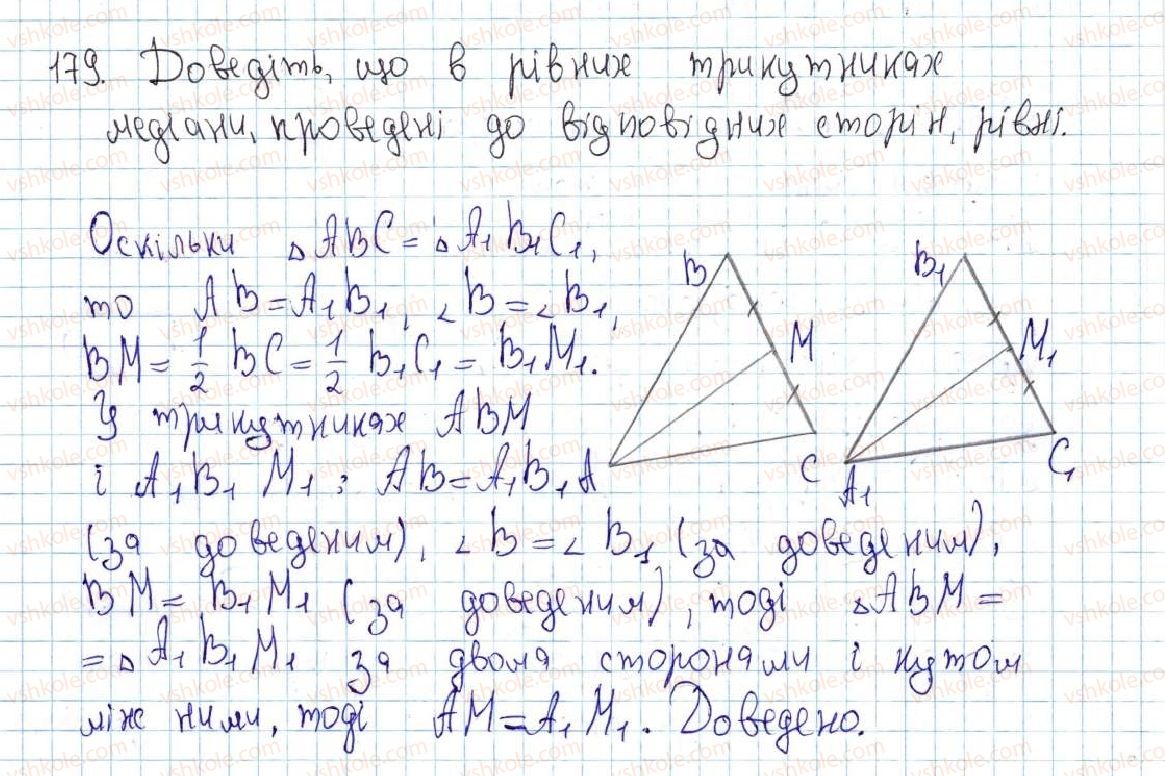 179. Доведіть, що в рівних трикутниках
медіани, проведені до відповідних сторін, рівні.
Оскільки △ABC = △A₁B₁C₁,
то AB = A₁B₁, ∠B = ∠B₁,
BM = 1/2 BC = 1/2 B₁C₁ = B₁M₁.
У трикутниках ABM
і A₁B₁M₁: AB = A₁B₁
(за доведеним), ∠B = ∠B₁ (за доведеним),
BM = B₁M₁ (за доведеним), тоді △ABM =
= △A₁B₁M₁ за двома сторонами і кутом
між ними, тоді AM = A₁M₁. Доведено.
B
M
A
C
B₁
M₁
A₁
C₁
vshkole.com